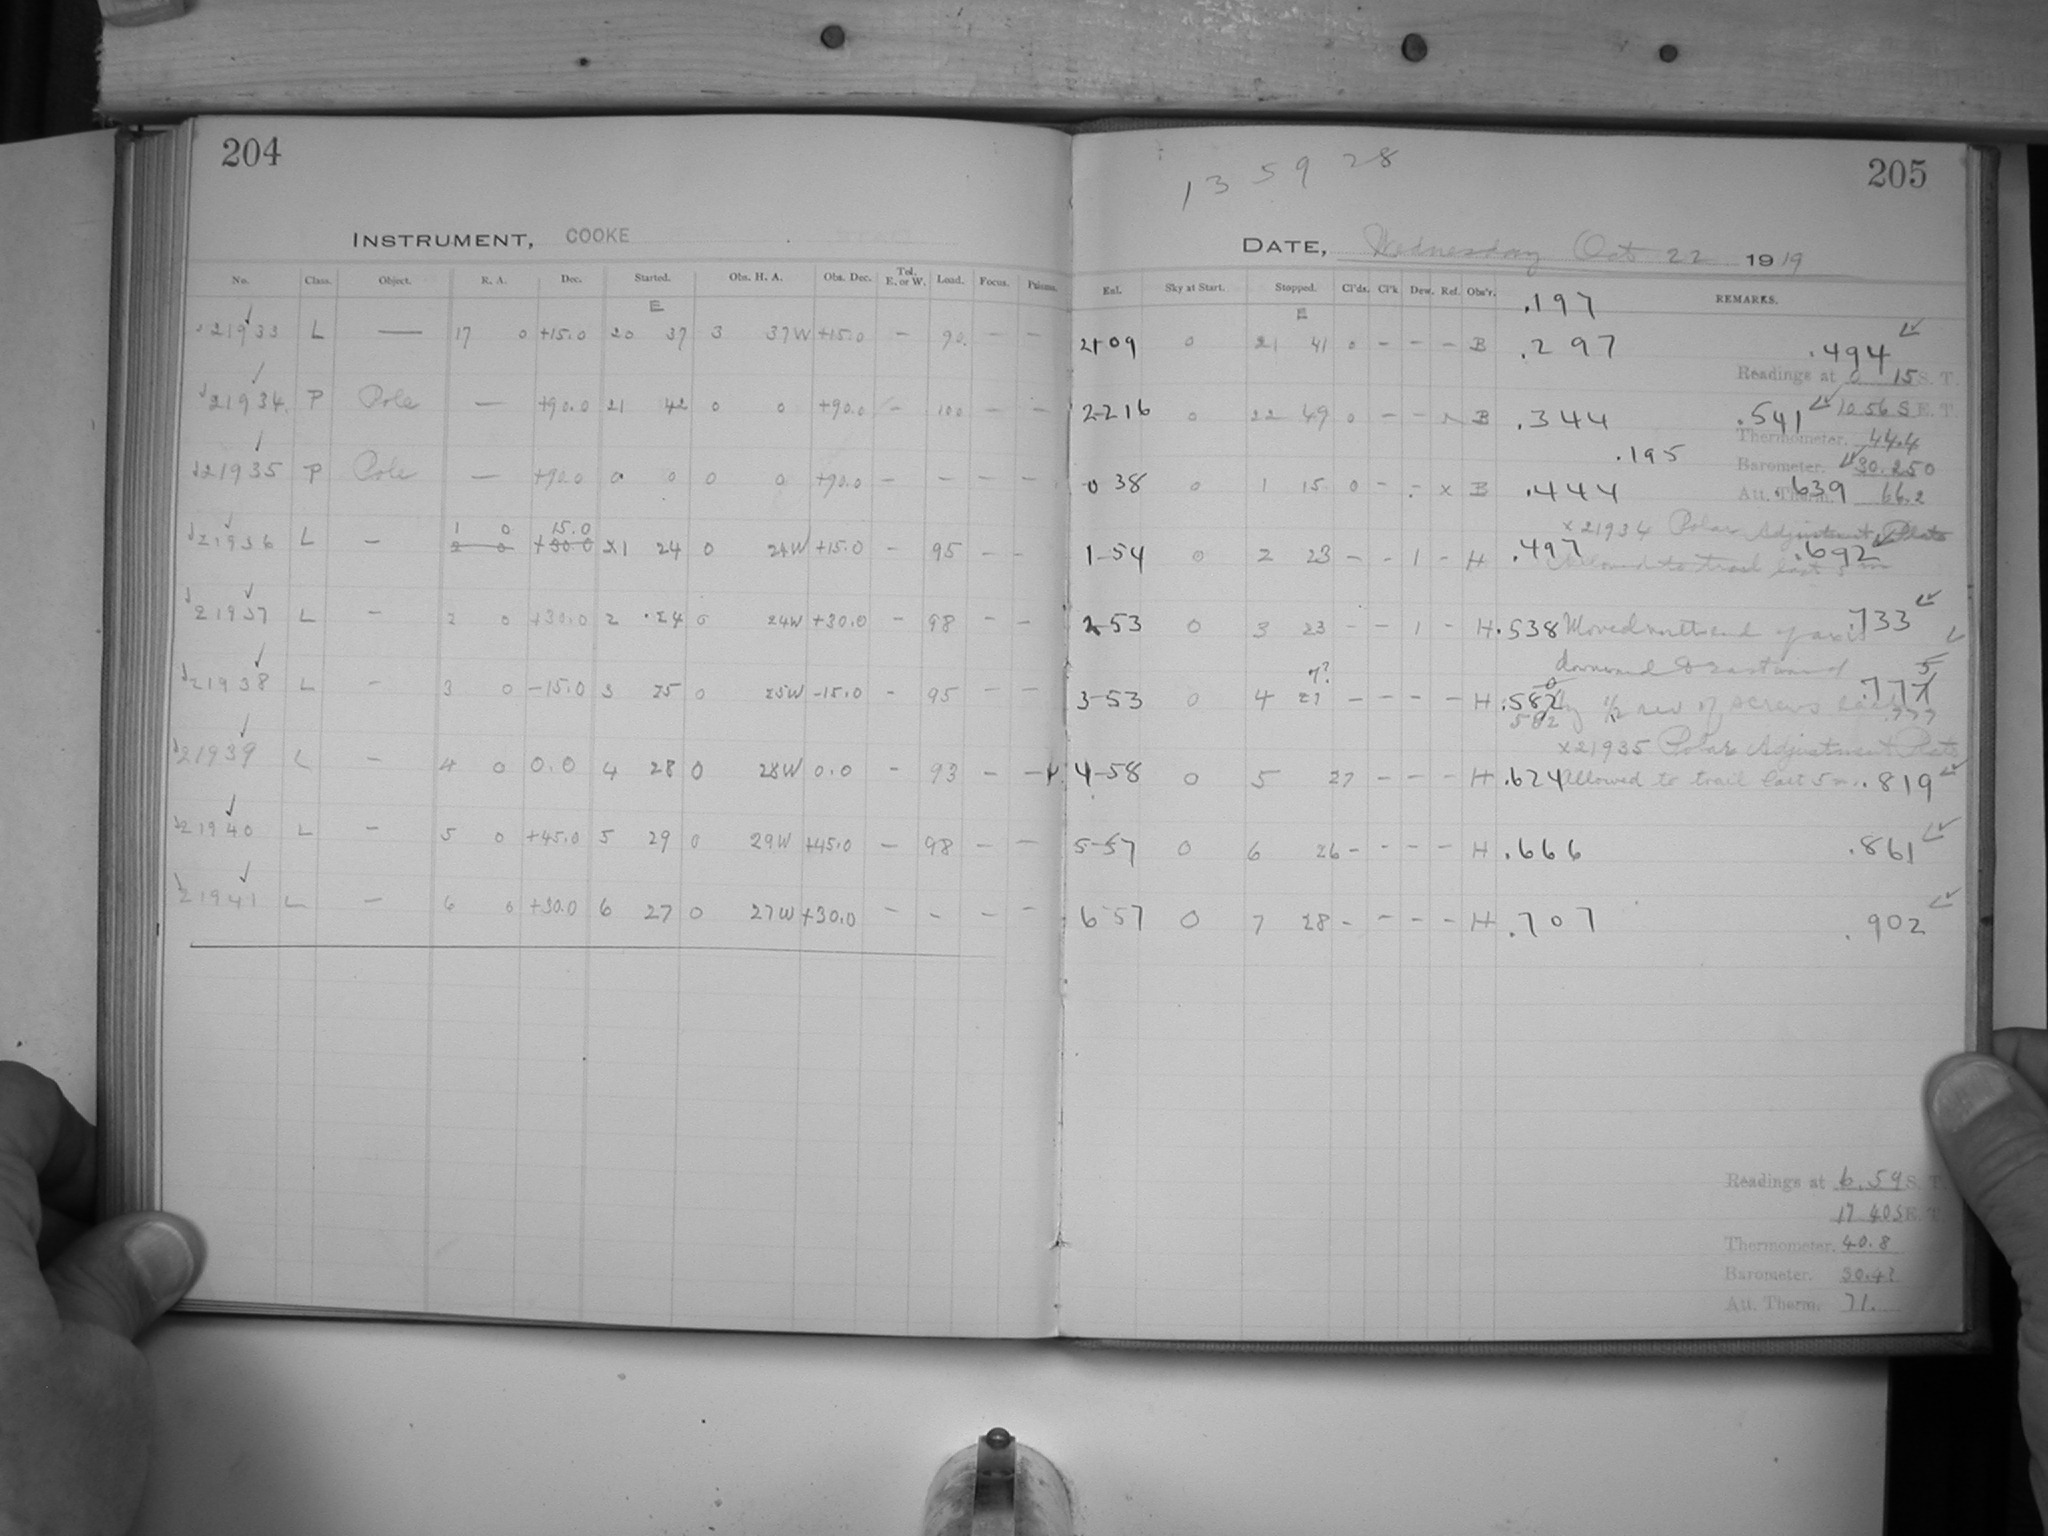 204
INSTRUMENT, COOKE
No. Class. Object. R. A. Dec. Started. Obs. H. A. Obs. Dec. Tel. E. or W. Load. Focus.
E
21933 L — 17 0 +15.0 20 37 3 37W +15.0 - 90. - -
21934 P Pole — +90.0 21 42 0 0 +90.0 - 100 - -
21935 P Pole — +90.0 0 0 0 0 +90.0 - - - -
1 0 15.0
21936 L - 2 0 +30.0 1 24 0 24W +15.0 - 95 - -
21937 L - 2 0 +30.0 2 24 0 24W +30.0 - 98 - -
21938 L - 3 0 -15.0 3 25 0 25W -15.0 - 95 - -
21939 L - 4 0 0.0 4 28 0 28W 0.0 - 93 - -
21940 L - 5 0 +45.0 5 29 0 29W +45.0 - 98 - -
21941 L - 6 0 +30.0 6 27 0 27W +30.0 - - - -
13 59 28
205
DATE, Wednesday Oct 22 1919
Sky at Start. Stopped. Cl'ds. Cl'k Dew. Ref. Obs'r. REMARKS.
.197
E
21 09 0 21 41 0 - - - B .297 .494
Readings at 0 15 S. T.
10 56 S E. T.
22 16 0 22 49 0 - - x B .344 .541
Thermometer. 44.4
.195
Barometer. 30.250
0 38 0 1 15 0 - - x B .444 .639
Att. Therm. 66.2
x 21934 Polar Adjustment Plate
1-54 0 2 23 - - 1 - H .497 .692
Allowed to trail last 5 m
2-53 0 3 23 - - 1 - H .538 Moved north end of axis .733
downward & eastward
7?
3-53 0 4 27 - - - - H .582 by 1/2 rev of screws each .777
582 .777
x 21935 Polar Adjustment Plate
4-58 0 5 27 - - - - H .624 Allowed to trail last 5 m. .819
5-57 0 6 26 - - - - H .666 .861
6 57 0 7 28 - - - - H .707 .902
Readings at 6.59 S. T.
17 40 S E. T.
Thermometer. 40.8
Barometer.
Att. Therm. 71.